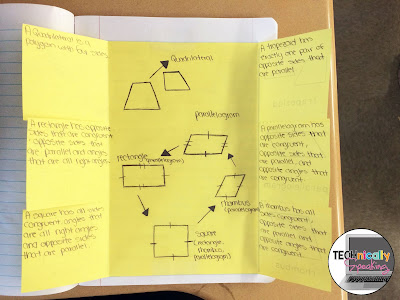 A Quadrilateral is a
polygon with four sides.
A rectangle has opposite
sides that are congruent
, opposite sides that
are parallel and angles
that are all right angles.
A square has all sides
congruent, angles that
are all right angles
and opposite sides
that are parallel.
Quadrilateral
parallelogram
rectangle (parallelogram)
rhombus
(parallelogram)
Square
(rectangle,
rhombus,
parallelogram)
A trapezoid has
exactly one pair of
opposite sides that
are parallel.
A parallelogram has
opposite sides that
are congruent,
opposite sides that
are parallel, and
opposite angles that
are congruent.
A rhombus has all
sides congruent,
opposite sides that
are parallel, and
opposite angles that
are congruent.
TECHnically
Speaking